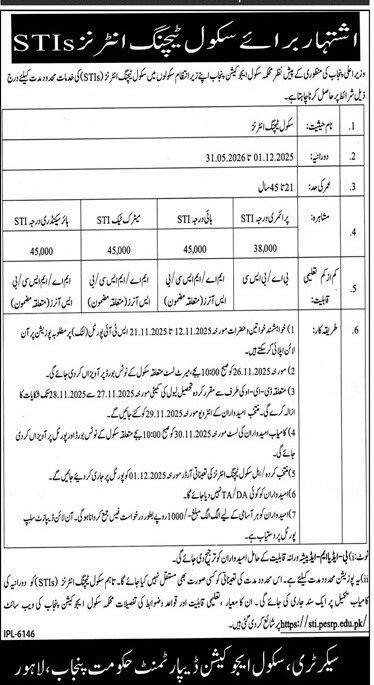 اشتہار برائے سکول ٹیچنگ انٹرنز STIs
وزیر اعلیٰ پنجاب کی منظوری کے پیش نظر محکمہ سکول ایجوکیشن پنجاب اپنے زیر انتظام سکولوں میں سکول ٹیچنگ انٹرنز (STIs) کی خدمات محدود مدت کیلئے درج
ذیل شرائط پر حاصل کرنا چاہتا ہے۔
1. نام حیثیت: سکول ٹیچنگ انٹرنز
2. دورانیہ: 01.12.2025 تا 31.05.2026
3. عمر کی حد: 21 تا 45 سال
4. مشاہرہ: پرائمری درجہ STI ہائی درجہ STI میٹرک ٹیک STI ہائر سیکنڈری درجہ STI
38,000 45,000 45,000 45,000
5. کم از کم تعلیمی قابلیت: بی اے/بی ایس سی ایم اے/ایم ایس سی/بی ایس آنرز (متعلقہ مضمون) ایم اے/ایم ایس سی/بی ایس آنرز (متعلقہ مضمون) ایم اے/ایم ایس سی/بی ایس آنرز (متعلقہ مضمون)
6. طریقہ کار: 1) خواہشمند خواتین و حضرات مورخہ 12.11.2025 تا 21.11.2025 ایس ٹی آئی پورٹل (لنک) پر مطلوبہ پوزیشن پر آن
لائن اپلائی کر سکتے ہیں۔
2) مورخہ 26.11.2025 کو صبح 10:00 بجے، میرٹ لسٹ متعلقہ سکول کے نوٹس بورڈ پر آویزاں کر دی جائے گی۔
3) متعلقہ ڈی-ای-او کی طرف سے مقرر کردہ تحصیل لیول کی کمیٹی مورخہ 27.11.2025 سے 28.11.2025 تک شکایات کا
ازالہ کرے گی۔ منتخب امیدواران کے انٹرویو مورخہ 29.11.2025 کو کئے جائیں گے۔
4) کامیاب امیدواران کی لسٹ مورخہ 30.11.2025 کو صبح 10:00 بجے متعلقہ سکول کے نوٹس بورڈ اور پورٹل پر آویزاں کر دی
جائے گی۔
5) منتخب کردہ/اہل سکول ٹیچنگ انٹرنز کی تعیناتی آرڈر مورخہ 01.12.2025 کو پورٹل پر جاری کر دیئے جائیں گے۔
6) امیدواران کو کوئی TA/DA نہیں دیا جائے گا۔
7) امیدواران کو ہر آسامی کے لیے الگ الگ مبلغ -/1000 روپے بطور درخواست فیس جمع کروانا ہو گی۔ آن لائن ڈیپازٹ سلپ
پورٹل پر دستیاب ہے۔
نوٹ: i) بی-ایڈ یا ایم-ایڈ پیشہ ورانہ قابلیت کے حامل امیدواران کو ترجیح دی جائے گی۔
ii) یہ پوزیشن محدود مدت کیلئے ہے۔ اس محدود مدت کی تعیناتی کو کسی صورت بھی مستقل نہیں کیا جائے گا۔ تاہم سکول ٹیچنگ انٹرنز (STIs) کو دورانیہ کی
کامیاب تکمیل پر ایک سند جاری کی جائے گی۔ ان کا معیار، تعلیمی قابلیت اور قواعد و ضوابط کی تفصیلات محکمہ سکول ایجوکیشن پنجاب کی ویب سائٹ
https://sti.pesrp.edu.pk/ پر شائع کر دی گئی ہیں۔
IPL-6146
سیکرٹری، سکول ایجوکیشن ڈیپارٹمنٹ حکومت پنجاب، لاہور